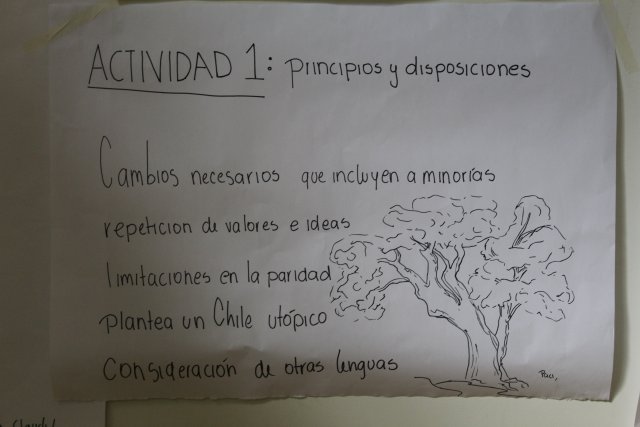 ACTIVIDAD 1: principios y disposiciones
Cambios necesarios que incluyen a minorías
repetición de valores e ideas
limitaciones en la paridad
plantea un Chile utópico
consideración de otras lenguas